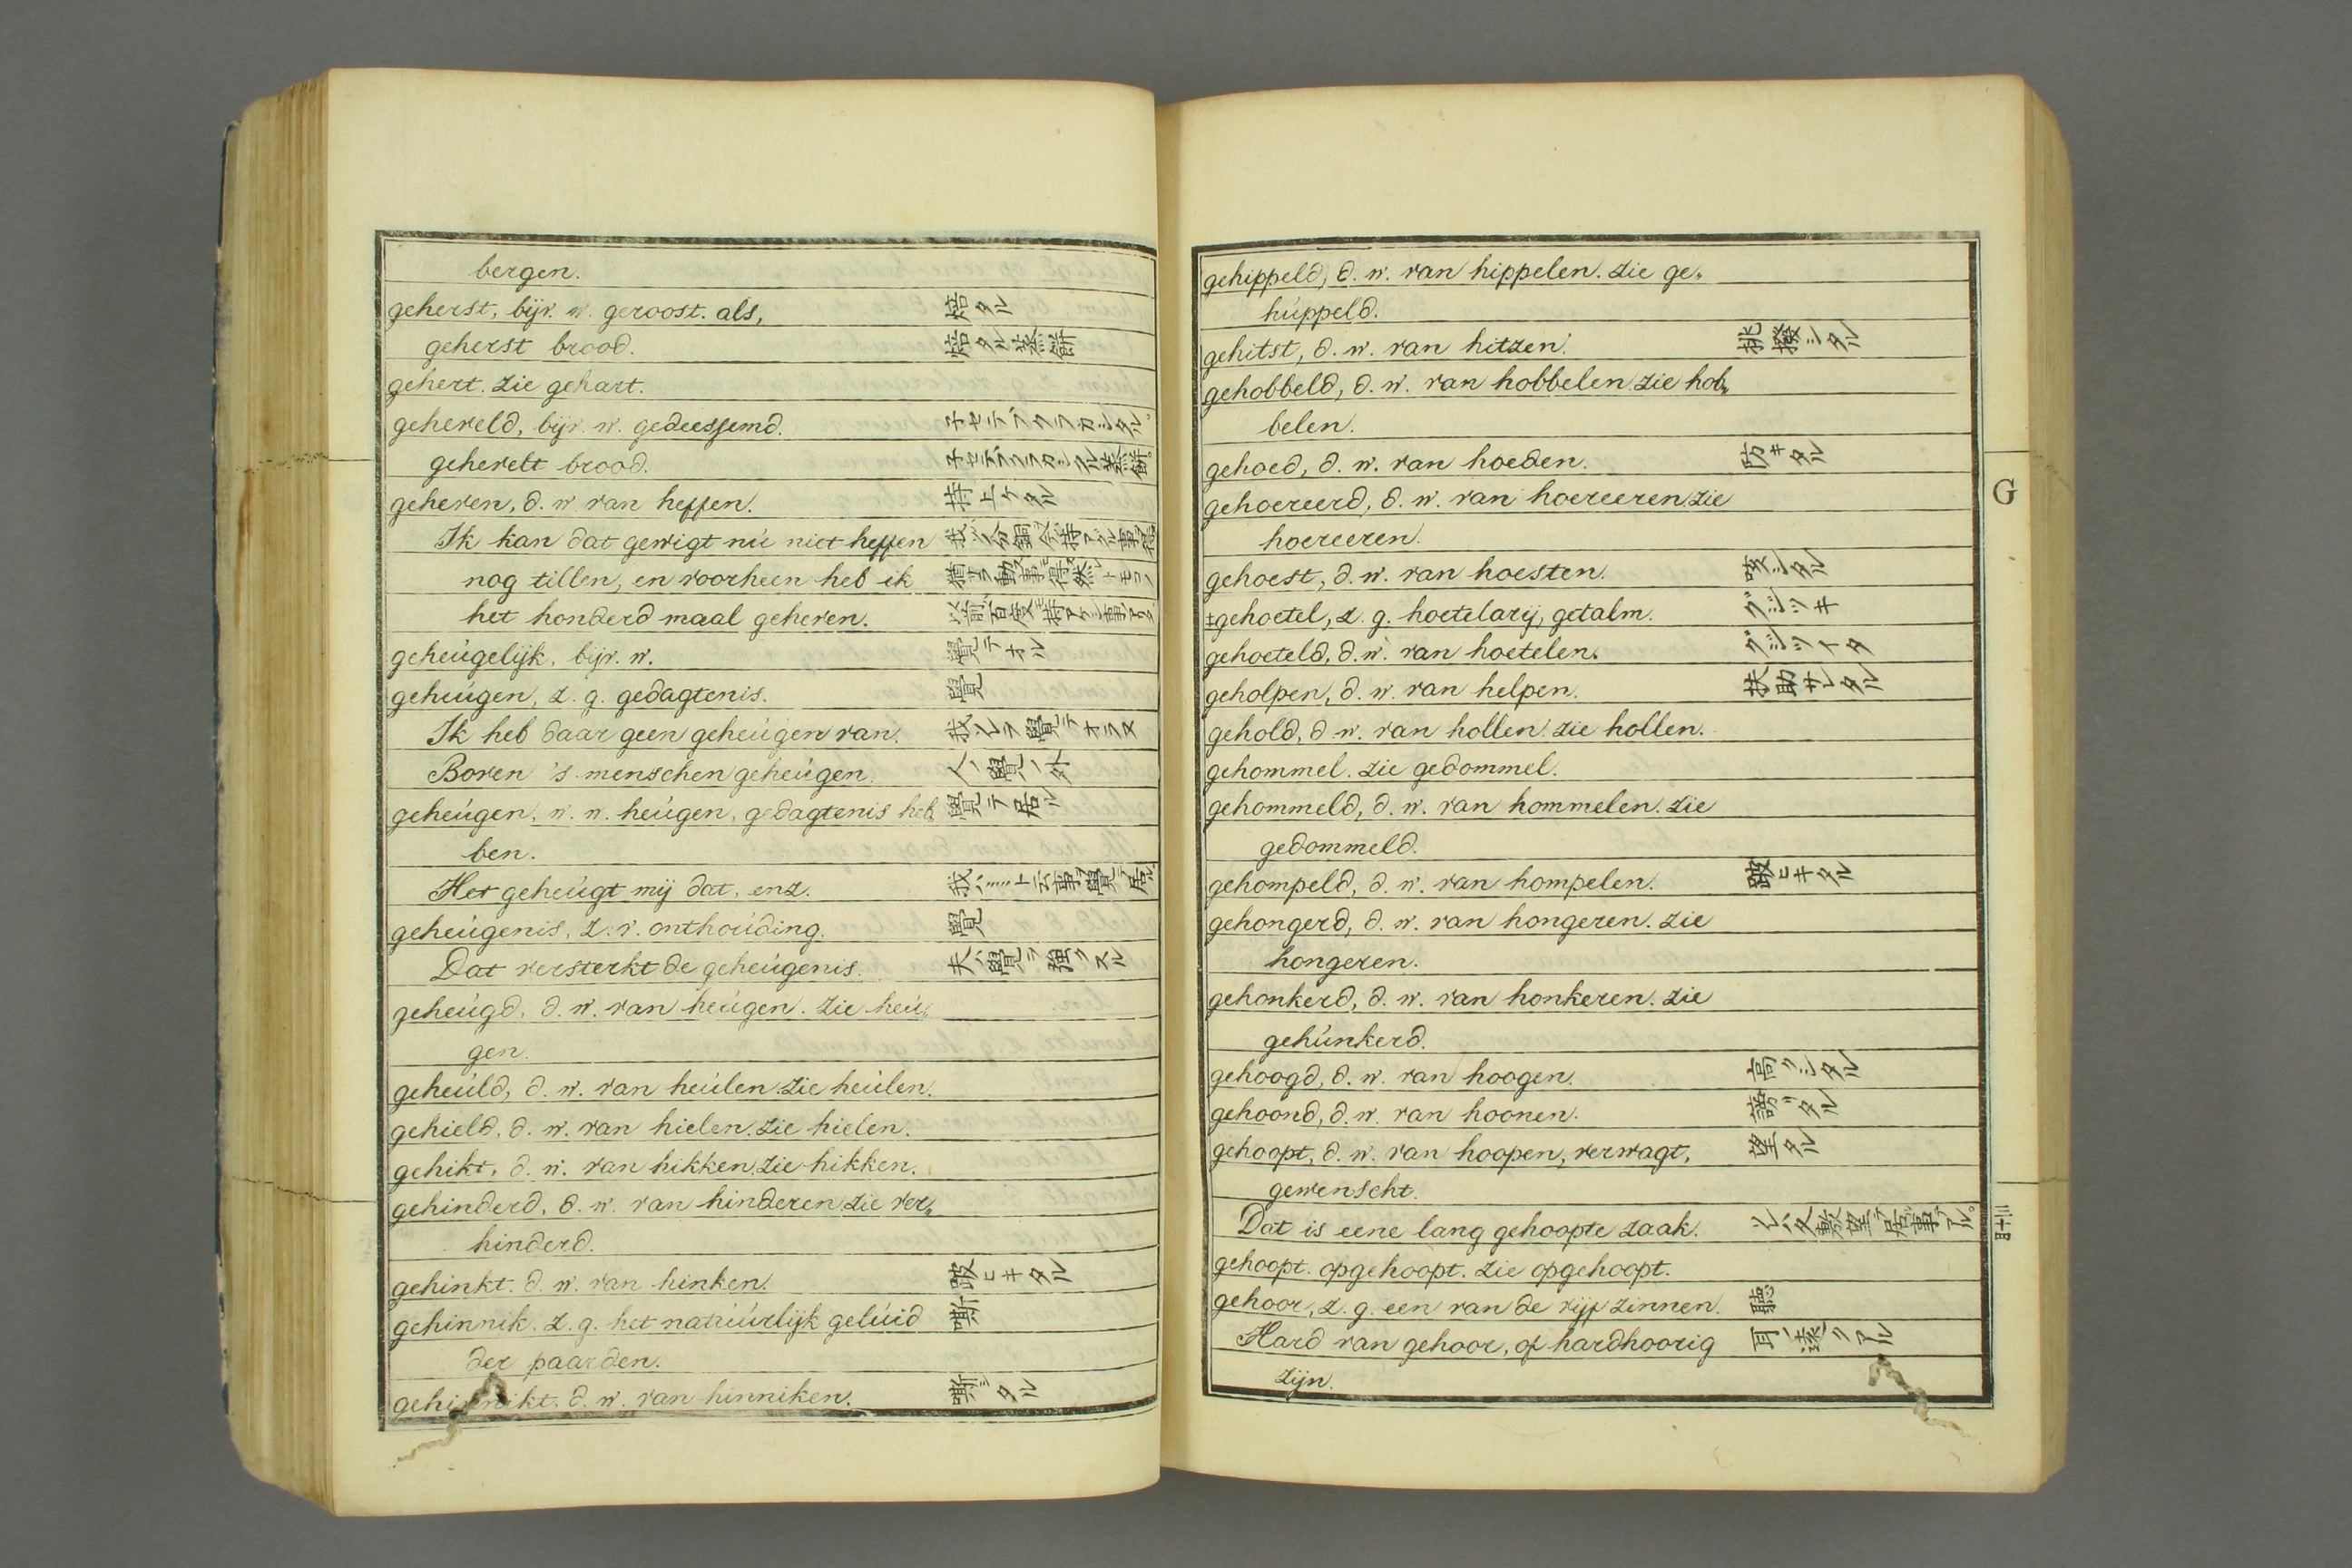 bergen.
geherst, bijv. w. geroost. als, 焙タル
geherst brood. 焙タル蒸餅
gehert. zie gehart.
geheveld, bijv. w. gedeessemd. 子セテフクラカシタル。
gehevelt brood. 子セテフクラカシタル蒸餅。
geheven, d. w van heffen. 持上ケタル
Ik kan dat gewigt nú niet heffen
nog tillen, en voorheen heb ik
het honderd maal geheven.
geheúgelijk, bijv. w.覺テオル
geheúgen, z. g. gedagtenis. 覺
Ik heb daar geen geheúgen van. 我ソレヲ覺テオラヌ
Boven 's menschen geheúgen. 人ノ覺ノ外
geheúgen, w. w. heúgen, gedagtenis heb„ 覺テ居ル
ben.
Het geheúgt mij dat, enz. 我ハ……ト云事ヲ覺テ居ル
geheúgenis, z. v. onthoúding. 覺
Dat versterkt de geheúgenis. 夫ハ覺ヲ强クスル
geheúgd, d. w. van heúgen. zie heú„
gen.
geheúld, d. w. van heúlen. zie heúlen.
gehield, d. w. van hielen. zie hielen.
gehikt, d. w. van hikken. zie hikken.
gehinderd, d. w. van hinderen zie ver„
hinderd.
gehinkt. d. w. van hinken. 跛ヒキタル
gehinnik. z. g. het natúúrlijk gelúid 嘶
der paarden.
gehinnikt. d. w. van hinniken. 嘶シタル
gehippeld, d. w. van hippelen. zie ge„
húppeld.
gehitst, d. w. van hitzen. 挑撥シタル
gehobbeld, d. w. van hobbelen zie hob„
belen.
gehoed, d. w. van hoeden. 防キタル
gehoereerd, d. w. van hoereeren zie
hoereeren.
gehoest, d. w. van hoesten. 咳シタル
‡gehoetel, z. g. hoetelarij, getalm. グジツキ
gehoeteld, d. w. van hoetelen. グジツイタ
geholpen, d. w. van helpen. 扶助サレタル
gehold, d. w. van hollen. zie hollen.
gehommel. zie gedommel.
gehommeld, d. w. van hommelen. zie
gedommeld.
gehompeld, d. w. van hompelen. 跛ヒキタル
gehongerd, d. w. van hongeren. zie
hongeren.
gehonkerd, d. w. van honkeren. zie
gehúnkerd.
gehoogd, d. w. van hoogen. 高クシタル
gehoond, d. w. van hoonen. 謗リタル
gehoopt, d. w. van hoopen, verwagt, 望タル
gewenscht.
Dat is eene lang gehoopte zaak.
gehoopt. opgehoopt. zie opgehoopt.
gehoor, z. g. een van de vijf zinnen. 聽
Hard van gehoor, of hardhoorig 耳ノ遠クアル
zijn.
G